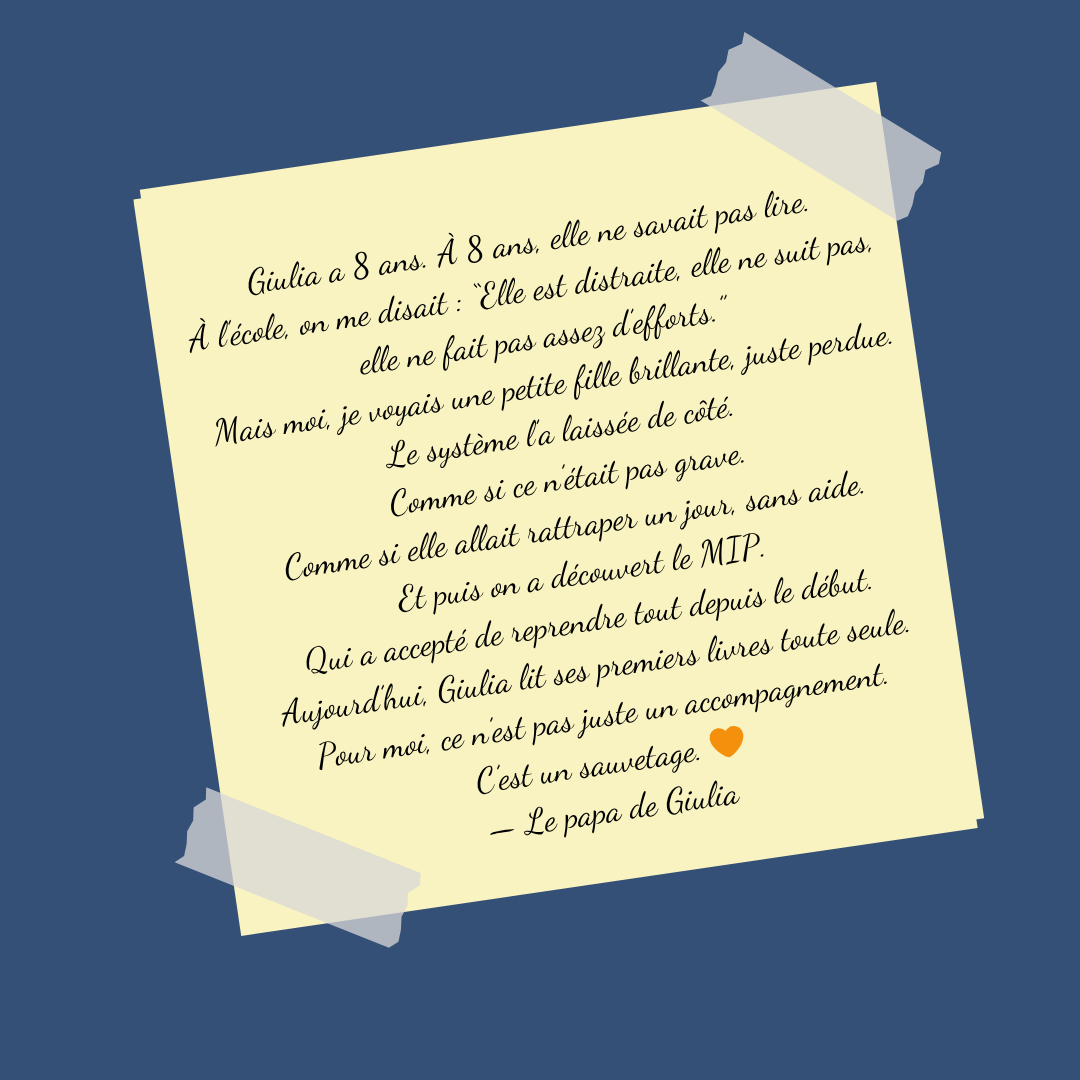 Giulia a 8 ans. À 8 ans, elle ne savait pas lire.
À l'école, on me disait : “Elle est distraite, elle ne suit pas,
elle ne fait pas assez d'efforts.”
Mais moi, je voyais une petite fille brillante, juste perdue.
Le système l'a laissée de côté.
Comme si ce n'était pas grave.
Comme si elle allait rattraper un jour, sans aide.
Et puis on a découvert le MIP.
Qui a accepté de reprendre tout depuis le début.
Aujourd'hui, Giulia lit ses premiers livres toute seule.
Pour moi, ce n'est pas juste un accompagnement.
C'est un sauvetage. 🧡
— Le papa de Giulia